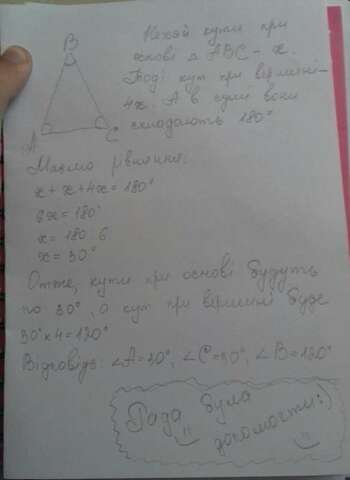 B
A
C
Нехай кути при
основі △ ABC - x.
Тоді кут при вершині -
4x. А в сумі вони
складають 180°
Маємо рівняння:
x + x + 4x = 180°
6x = 180°
x = 180:6
x = 30°
Отже, кути при основі будуть
по 30°, а кут при вершині буде
30° x 4 = 120°
Відповідь: ∠A = 30°, ∠C = 30°, ∠B = 120°
Рада була
допомогти:)